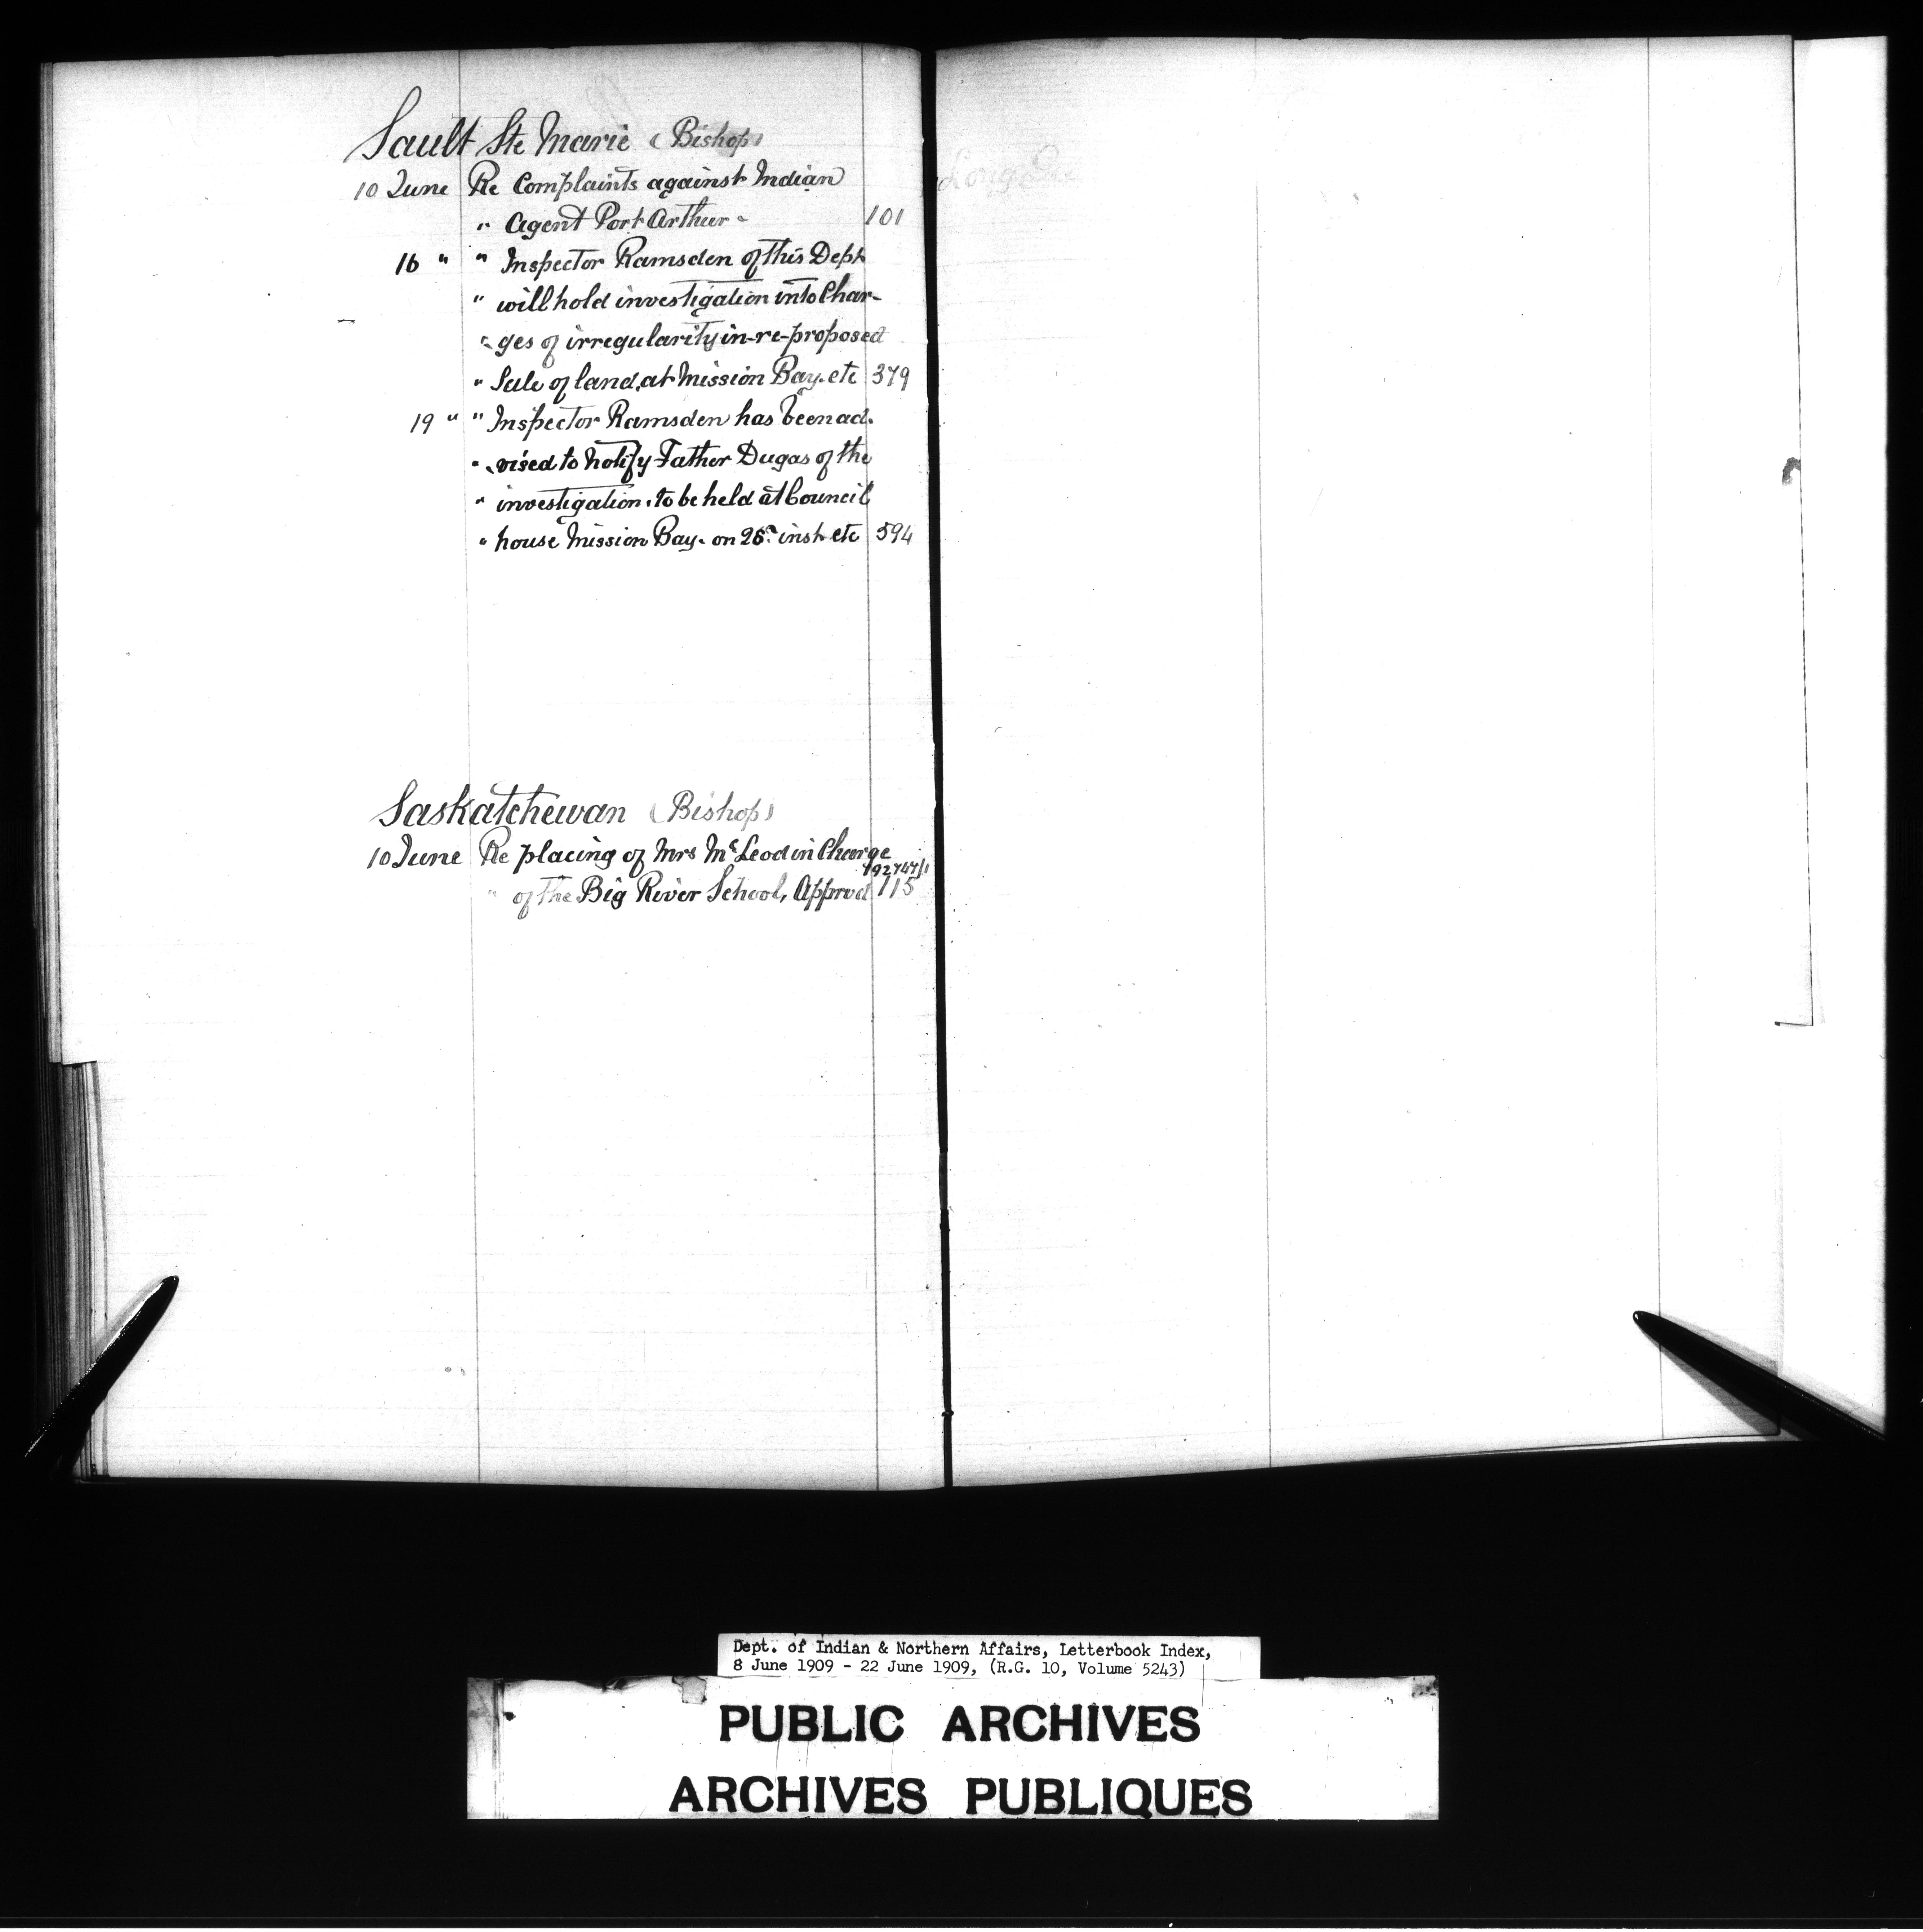 Sault Ste Marie (Bishop)
10 June Re Complaints against Indian
" Agent Port Arthur - 101
16 " " Inspector Ramsden of this Dept
" will hold investigation into Char-
" ges of irregularity in-re-proposed
" Sale of land, at Mission Bay. etc 379
19 " " Inspector Ramsden has been ad-
" vised to notify Father Dugas of the
" investigation. to be held at Council
" house Mission Bay. on inst etc 594
Saskatchewan (Bishop)
10 June Re placing of Mrs McLeod in Charge
" of the Big River School, Approvd 115
Dept. of Indian & Northern Affairs, Letterbook Index,
8 June 1909 - 22 June 1909, (R.G. 10, Volume 5243)
PUBLIC ARCHIVES
ARCHIVES PUBLIQUES